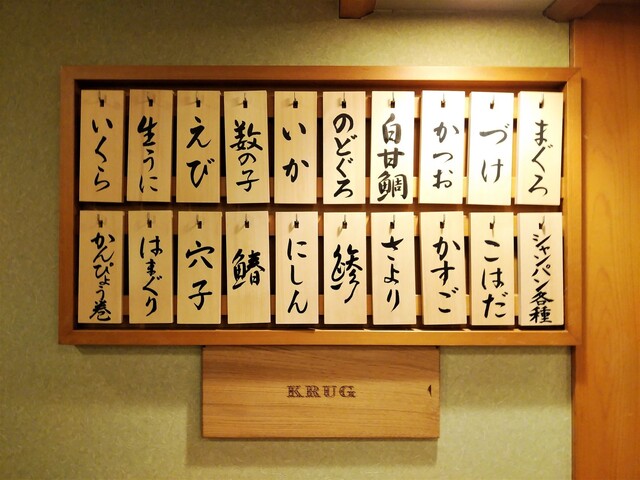 まぐろ
づけ
かつお
白甘鯛
のどぐろ
いか
数の子
えび
生うに
いくら
シャンパン各種
こはだ
かすご
さより
鯵
にしん
鰆
穴子
はまぐり
かんぴょう巻
KRUG